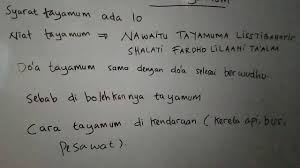 Syarat tayamum ada 10
Niat tayamum ⇒ NAWAITU TAYAMUMA LISSTIBAHATIH
SHALATI FARDHO LILAAHI TA'ALA
Do'a tayamum sama dengan do'a selesai berwudhu.
Sebab di bolehkannya tayamum
Cara tayamum di kendaraan (kereta api, bus,
pesawat).